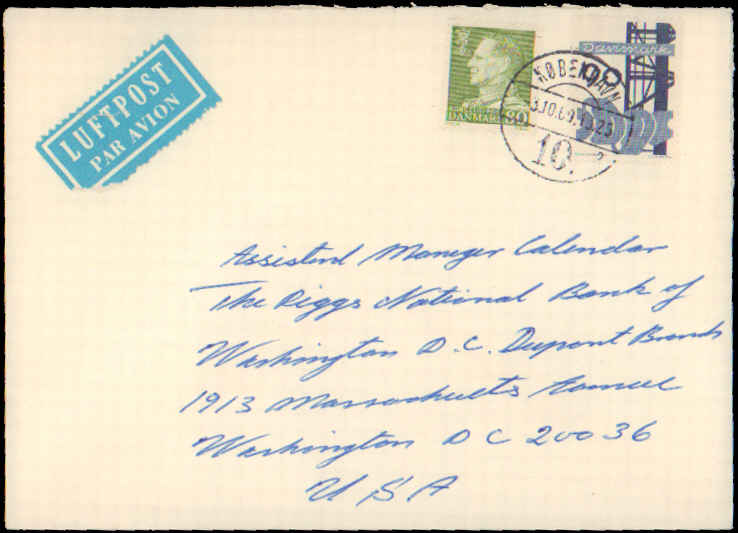 LUFTPOST
PAR AVION
DANMARK
Danmark
90
KØBENHAVN
10.
Assistend Maneger Calendar
The Riggs National Bank of
Washington D.C. Dupont Branch
1913 Massachusetts Avenue
Washington D C 20036
U S A